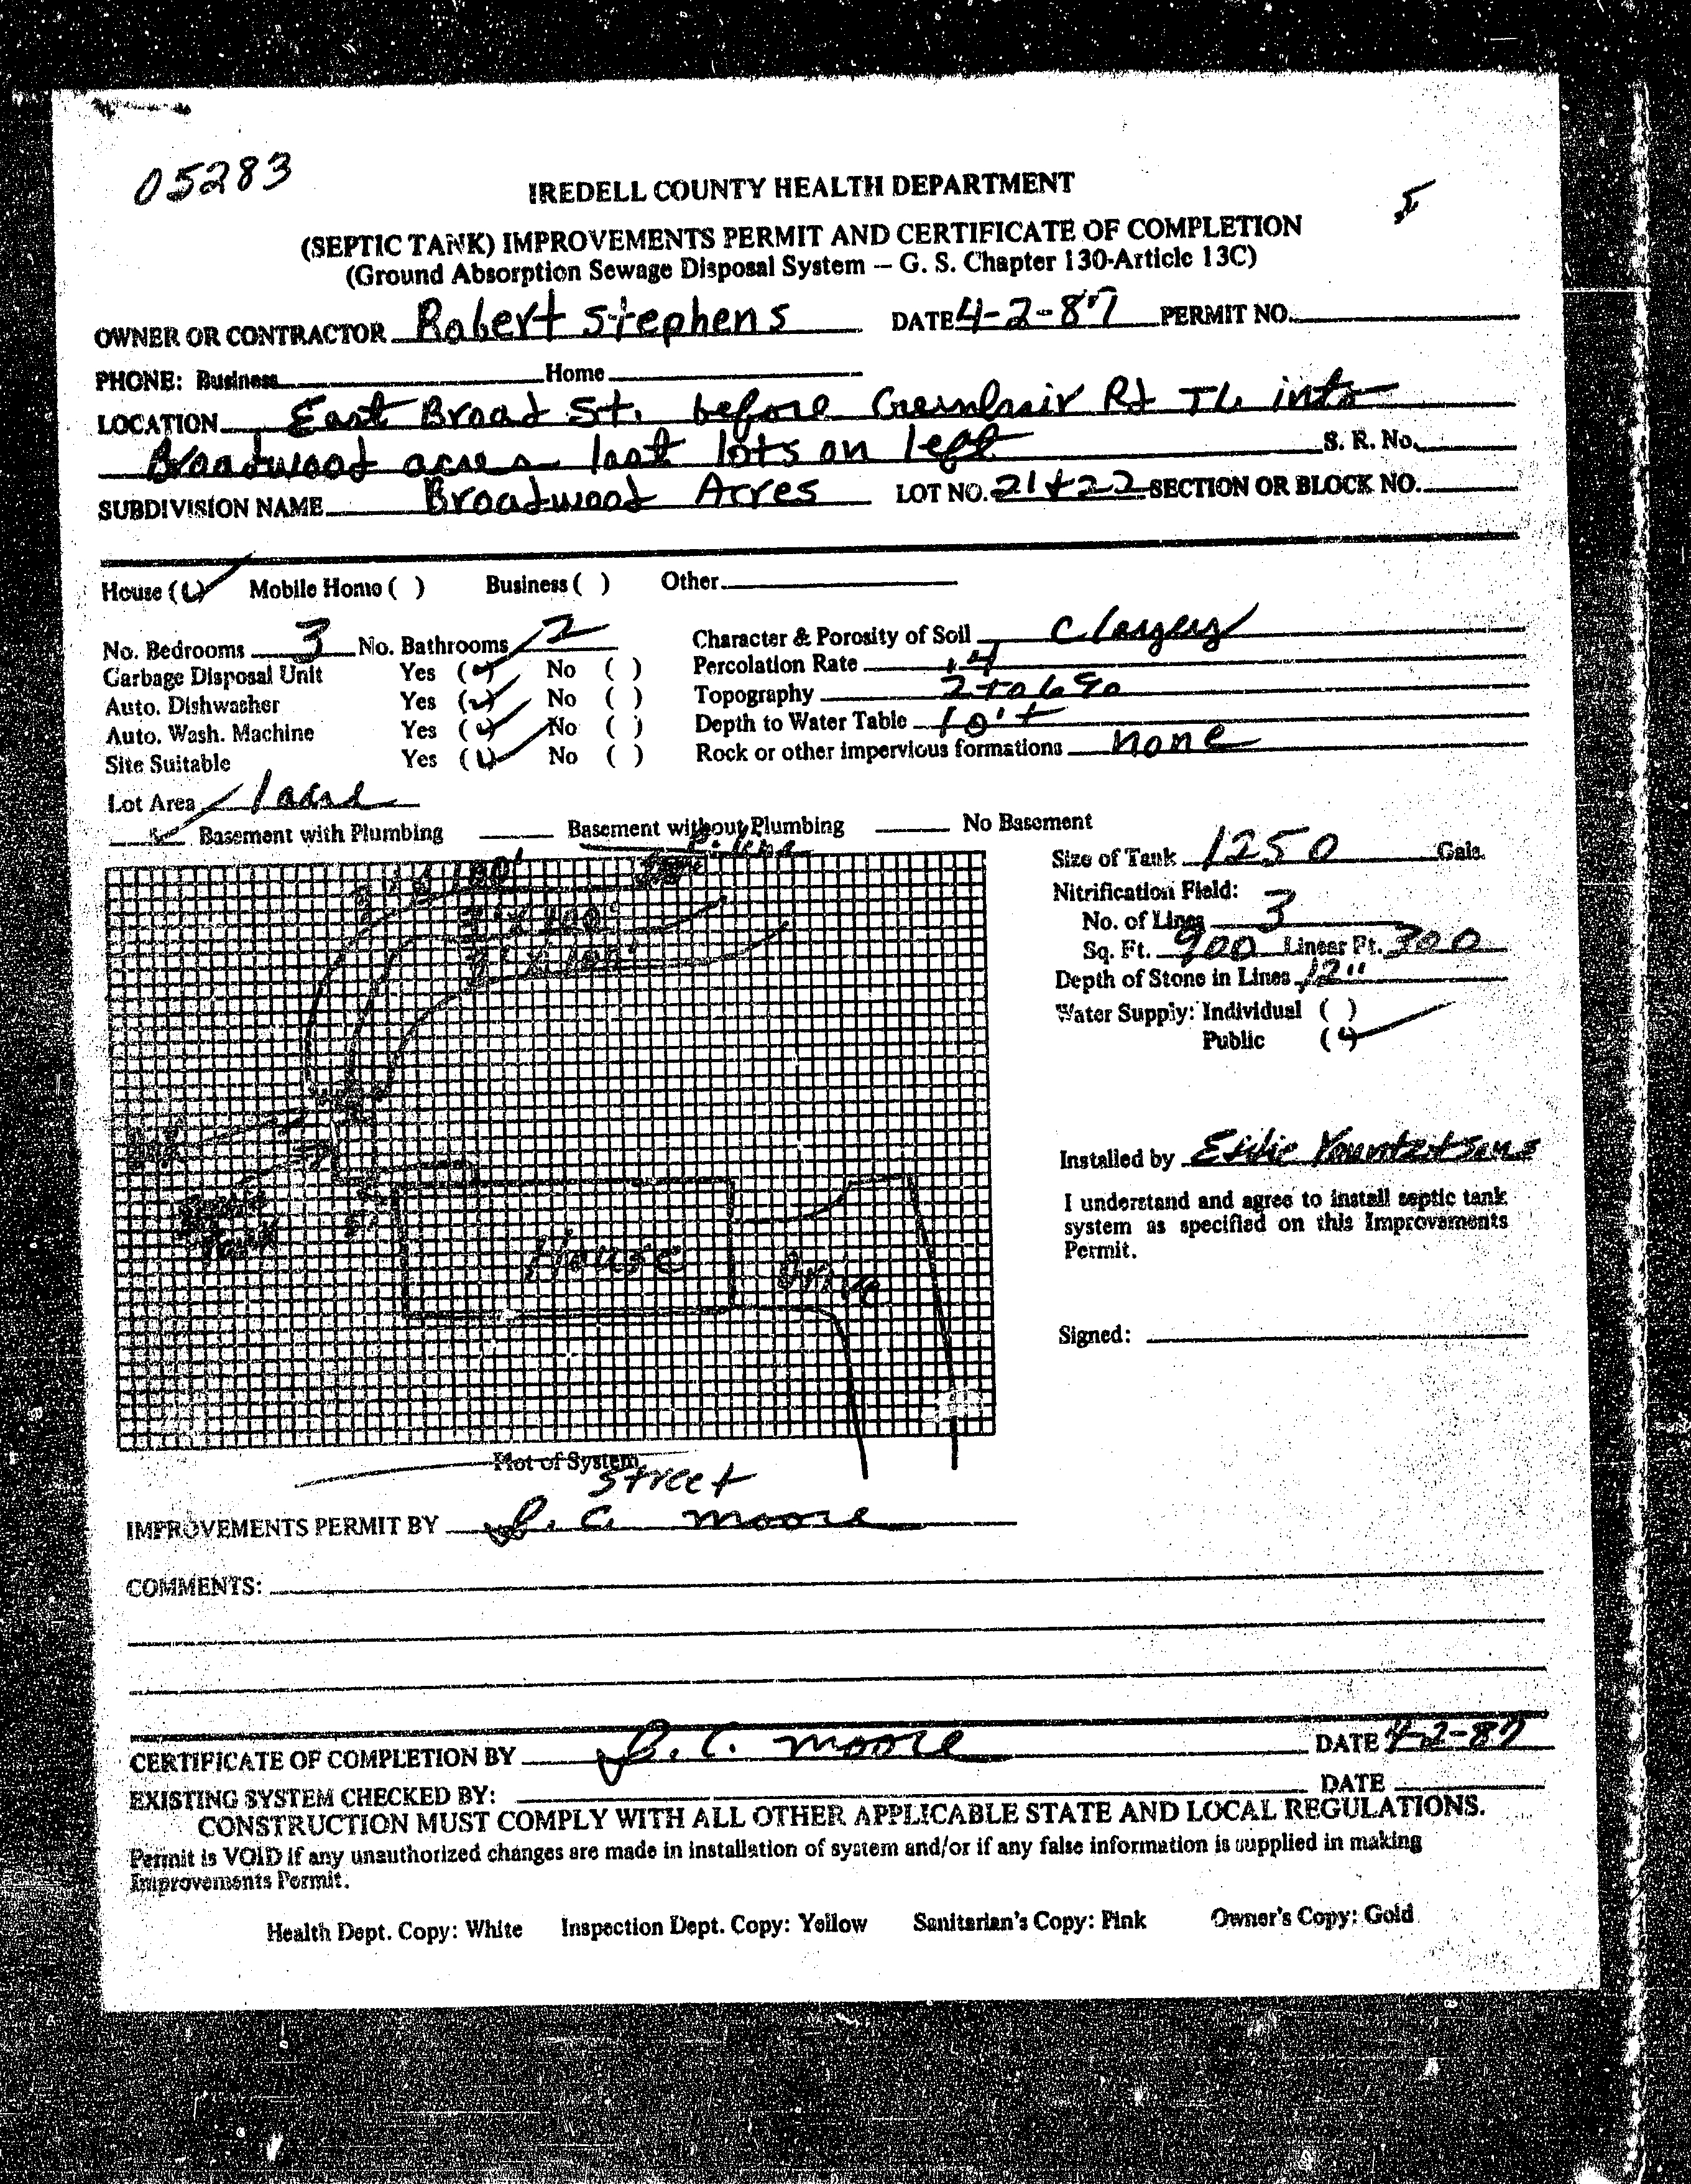 05283
IREDELL COUNTY HEALTH DEPARTMENT
(SEPTIC TANK) IMPROVEMENTS PERMIT AND CERTIFICATE OF COMPLETION
(Ground Absorption Sewage Disposal System — G. S. Chapter 130-Article 13C)
OWNER OR CONTRACTOR Robert Stephens DATE 4-2-87 PERMIT NO.
PHONE: Business Home
LOCATION East Broad St. before Greenbriir Rd TL into
Broadwood acres last lots on left S. R. No.
SUBDIVISION NAME Broadwood Acres LOT NO. 21 & 22 SECTION OR BLOCK NO.
House (✓) Mobile Home ( ) Business ( ) Other
No. Bedrooms 3 No. Bathrooms 2 Character & Porosity of Soil
Garbage Disposal Unit Yes (✓) No ( ) Percolation Rate .4
Auto. Dishwasher Yes (✓) No ( ) Topography 2 to 6%
Auto. Wash. Machine Yes (✓) No ( ) Depth to Water Table 10'+
Site Suitable Yes (✓) No ( ) Rock or other impervious formations none
Lot Area 1 acre
✓ Basement with Plumbing Basement without Plumbing No Basement
Size of Tank 1250 Gals.
Nitrification Field:
No. of Lines 3
Sq. Ft. 900 Linear Ft. 300
Depth of Stone in Lines 12"
Water Supply: Individual ( )
Public (✓)
100'
3' x 100'
3' x 100'
Septic
Tank
House
Drive
Installed by Eddie
I understand and agree to install septic tank
system as specified on this Improvements
Permit.
Signed:
Plot of System
Street
IMPROVEMENTS PERMIT BY J. C. Moore
COMMENTS:
CERTIFICATE OF COMPLETION BY J. C. Moore DATE 4-2-87
EXISTING SYSTEM CHECKED BY: DATE
CONSTRUCTION MUST COMPLY WITH ALL OTHER APPLICABLE STATE AND LOCAL REGULATIONS.
Permit is VOID if any unauthorized changes are made in installation of system and/or if any false information is supplied in making
Improvements Permit.
Health Dept. Copy: White Inspection Dept. Copy: Yellow Sanitarian's Copy: Pink Owner's Copy: Gold